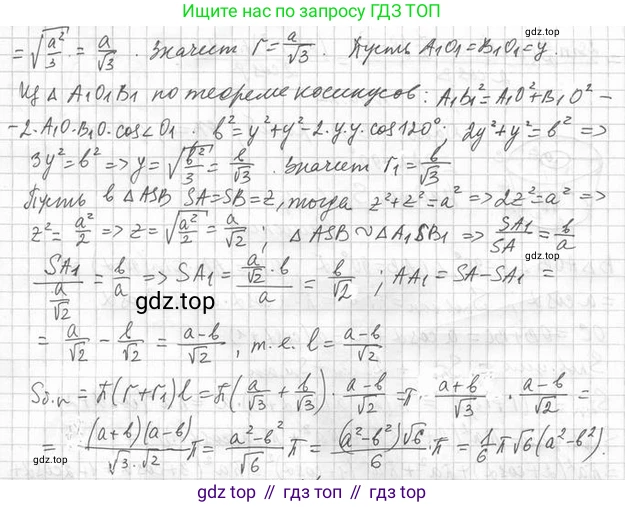 Нашёл нас по запросу ГДЗ ТОП
= √(a²/3) = a/√3 . Значит r = a/√3 . Пусть A₁O₁=B₁O₁=y.
Из △ A₁O₁B₁ по теореме косинусов: A₁B₁²=A₁O²+B₁O²-
-2·A₁O·B₁O·cos∠O₁ . b²=y²+y²-2·y·y·cos120°; 2y²+y²=b² =>
3y²=b² => y=√(b²/3)=b/√3 . Значит r₁=b/√3
Пусть в △ASB SA=SB=z, тогда z²+z²=a² => 2z²=a² =>
z²=a²/2 => z=√(a²/2)=a/√2 ; △ASB∼△A₁SB₁ => SA₁/SA=b/a
SA₁/(a/√2) = b/a => SA₁ = (a/√2 · b)/a = b/√2 ; AA₁=SA-SA₁ =
gdz.top
= a/√2 - b/√2 = (a-b)/√2, т.е. l=(a-b)/√2
Sб.п = π(r+r₁)l = π(a/√3+b/√3)·(a-b)/√2 = π·(a+b)/√3 · (a-b)/√2 =
= (a+b)(a-b)/(√3·√2) π = (a²-b²)/√6 π = (a²-b²)√6/6 ·π = 1/6 π√6(a²-b²).
gdz.top // гдз.топ // gdz.top